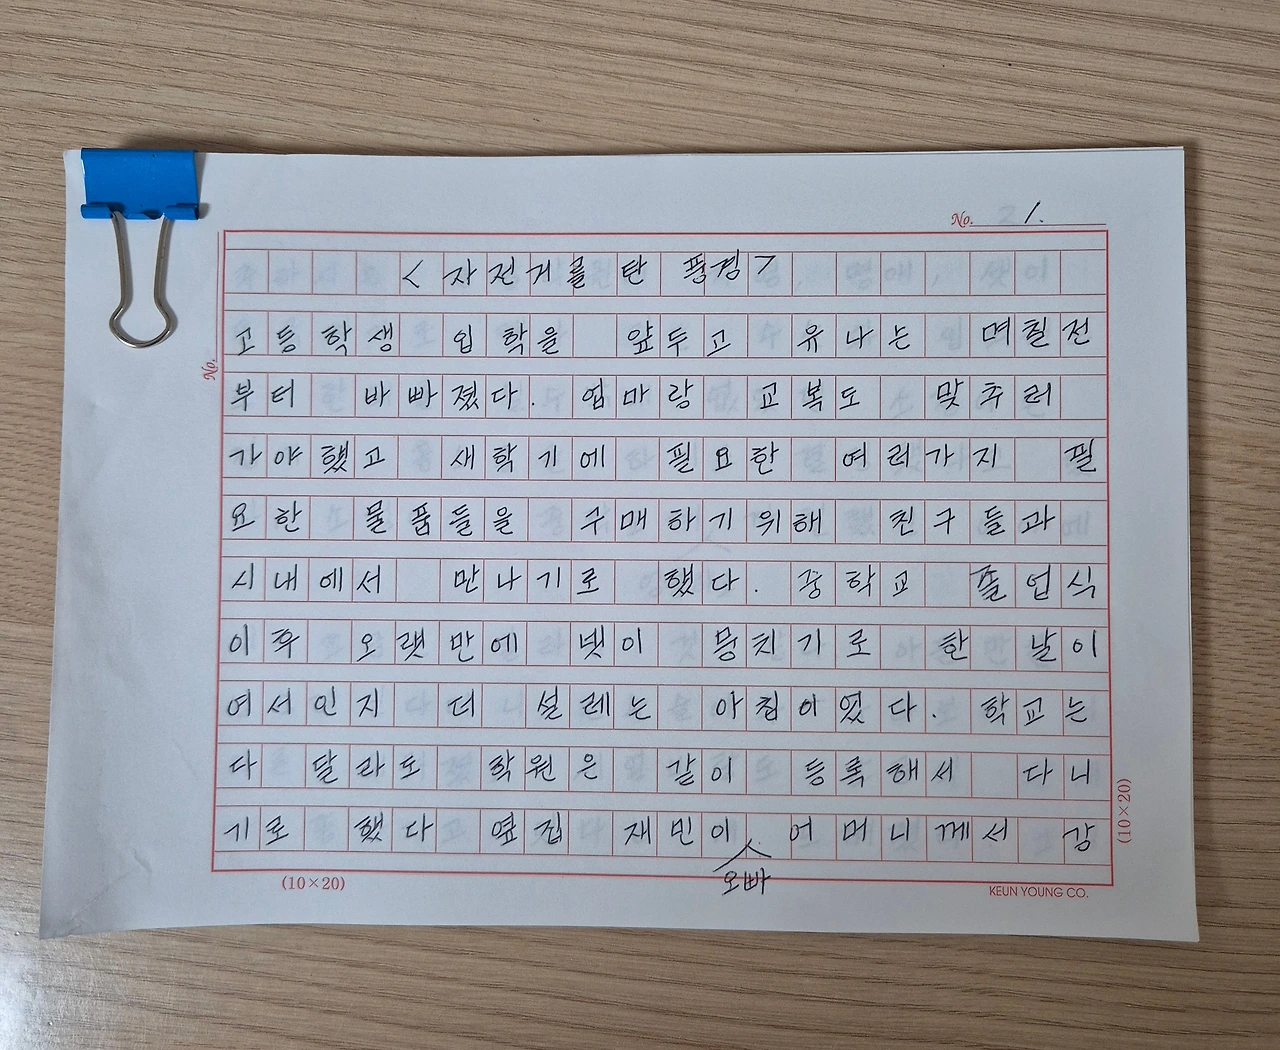 No. 1.
< 자전거를 탄 풍경 >
고등학생 입학을 앞두고 유나는 며칠전
부터 바빠졌다. 엄마랑 교복도 맞추러
가야했고 새학기에 필요한 여러가지 필
요한 물품들을 구매하기위해 친구들과
시내에서 만나기로 했다. 중학교 졸업식
이후 오랫만에 넷이 뭉치기로 한 날이
여서인지 더 설레는 아침이었다. 학교는
다 달라도 학원은 같이 등록해서 다니
기로 했다 옆집 재민이 어머니께서 강
오빠
No.
(10×20)
(10×20)
KEUN YOUNG CO.